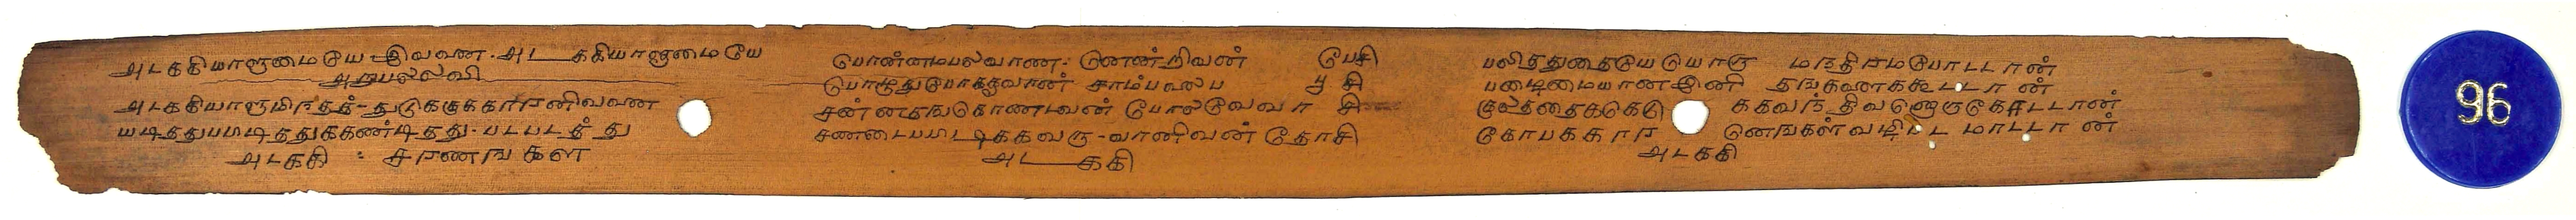 அடககியாளுமையே இவவண. அடககியாளுமையே
அநுபல்லவி
அடககியாளுமிநதத துடுககுககாறனிவவண
யடிததுபமடிததுககணடிதது. படபடத்து
அடககி : சரணஙகள
பொன்னமபலவாண: னெண்றிவன் பேசி
பொழுதுபோககுவான் சாம்பலைப பூசி
சன்னதஙகொணடவன் போலேவவா சி
சண்டைபமடிககவரு-வானிவன் தோசி
அடககி
பலிததுதையேயொரு மநதிரமபோடடான்
படைமையான இனி தஙகளைககூடடான்
குலததைககெடு ககவந் திவனொருகேசடடான்
கோபககார னெஙகள்வழிடட மாடடான்
அடககி
96